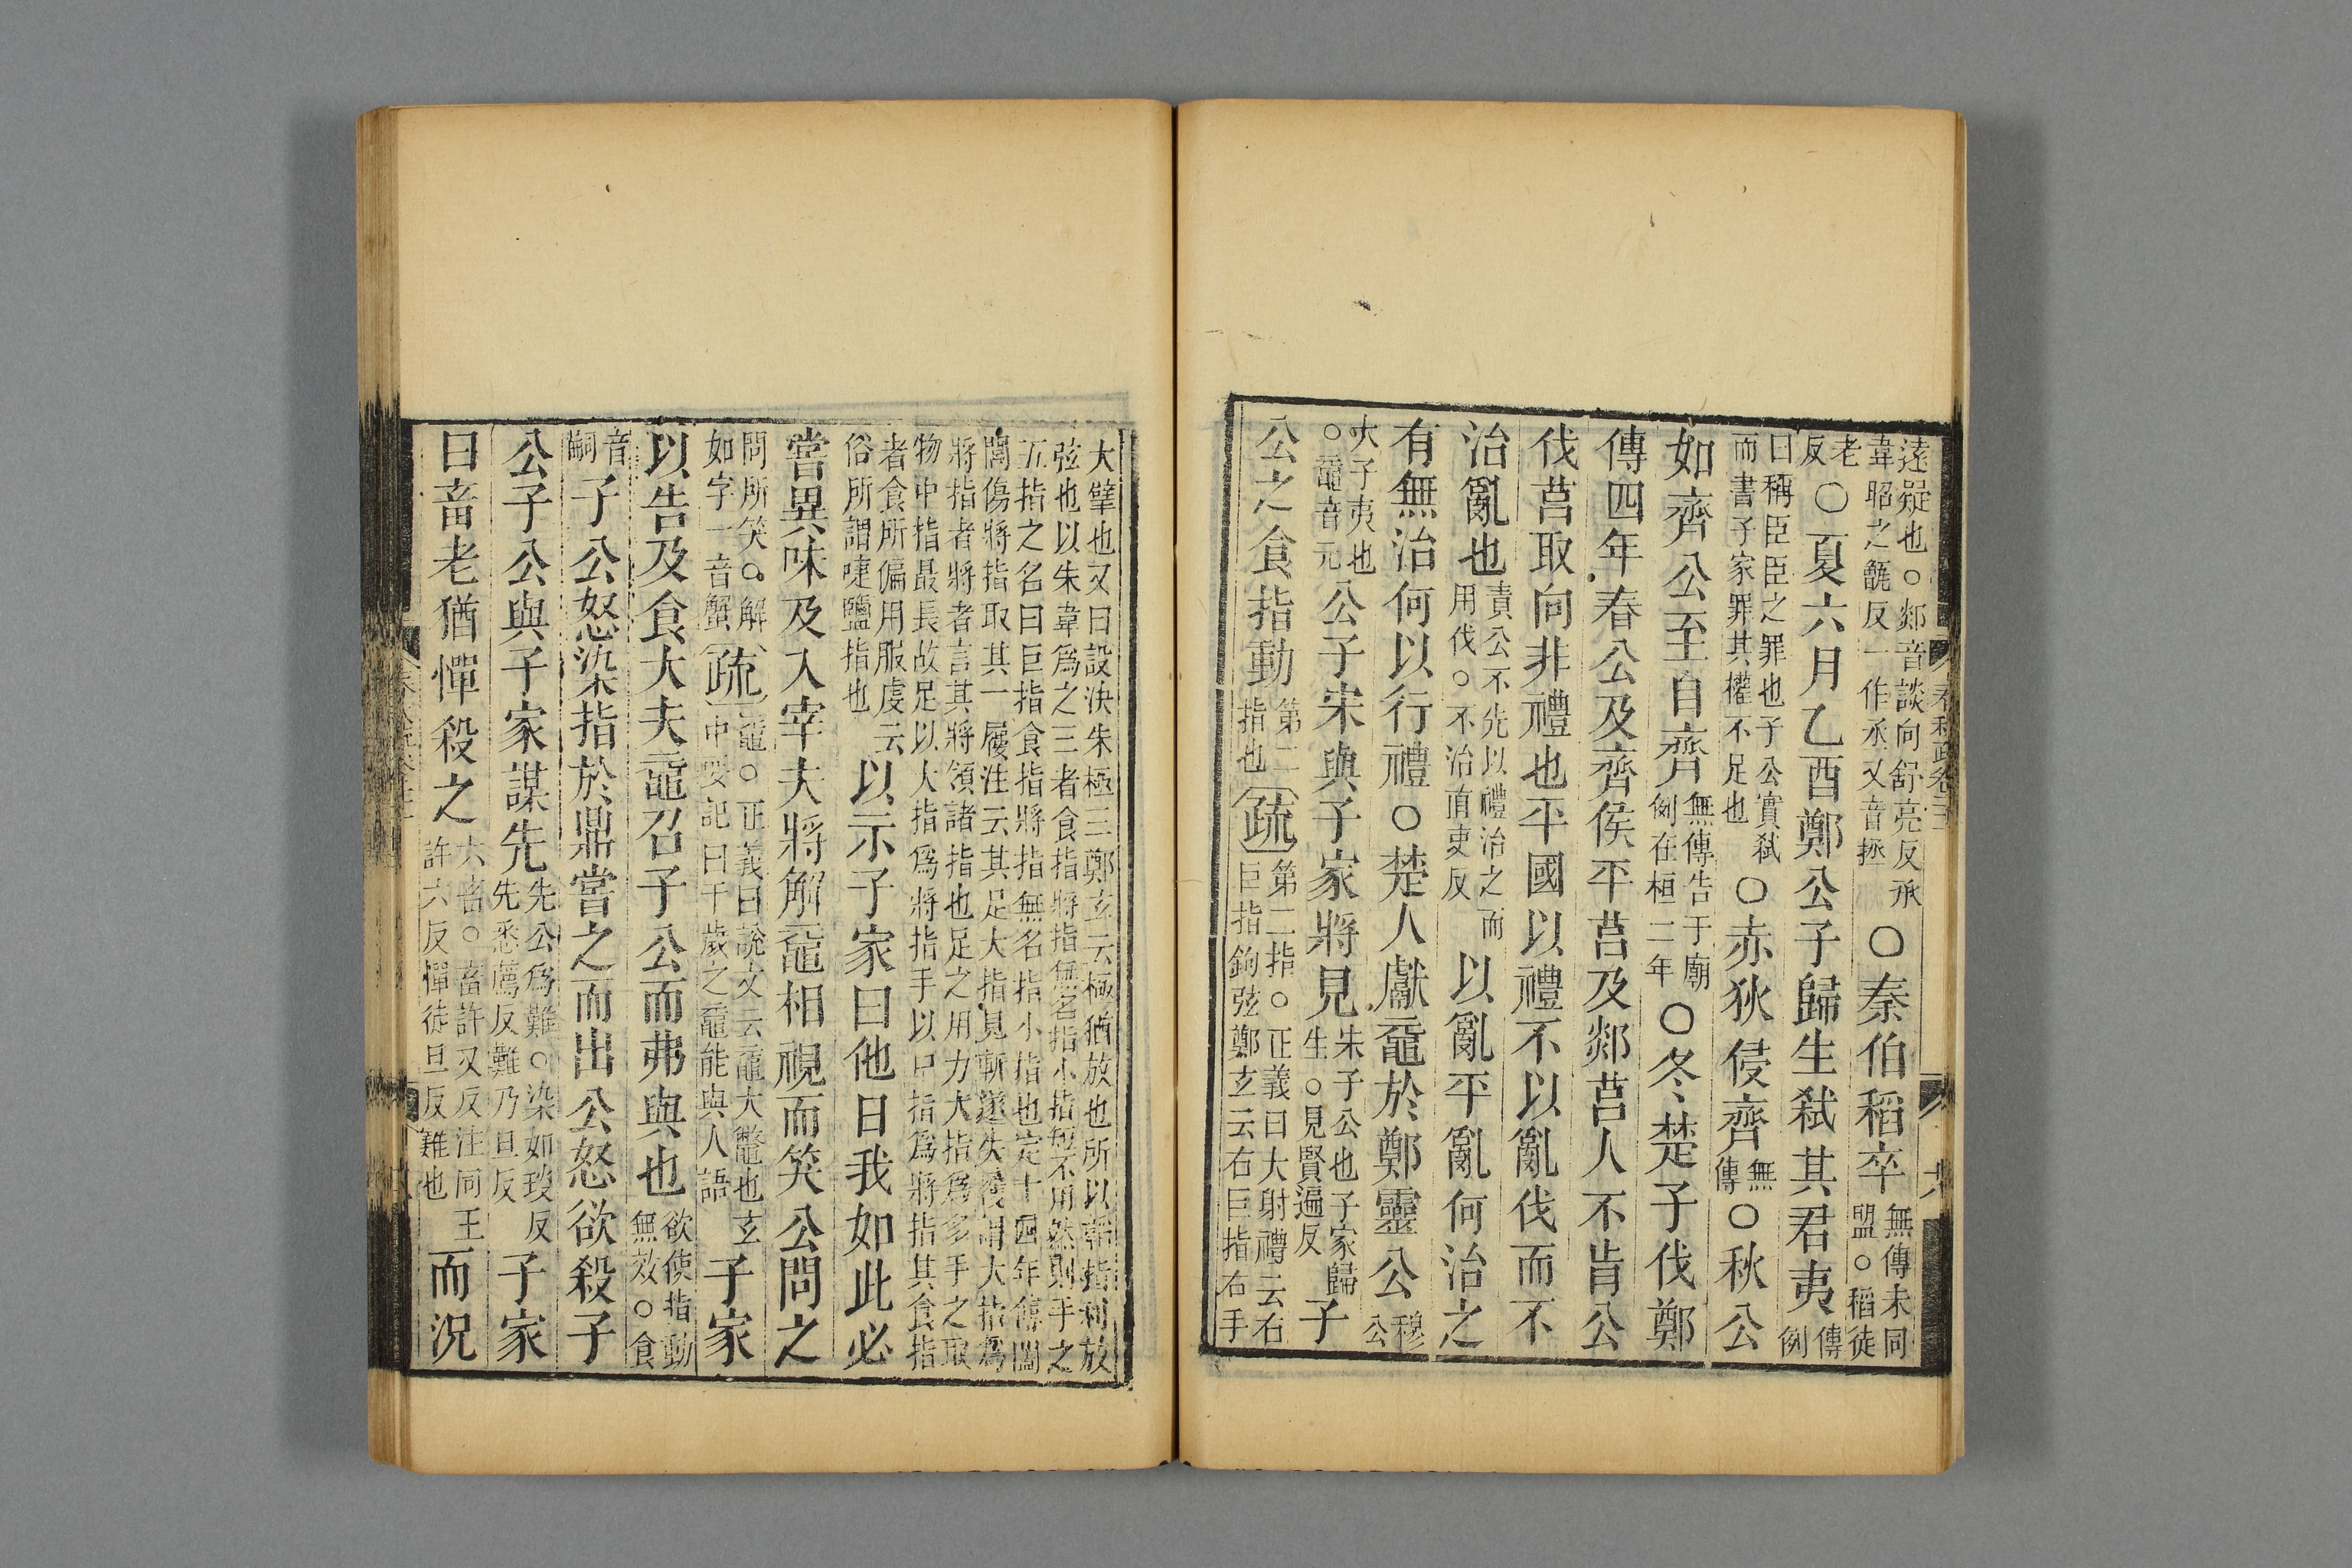 遠疑也○郯音談向舒亮反承
韋昭之甑反一作丞又音拯
○秦伯稻卒
無傳未同
盟○稻徒
老
反
○夏六月乙酉鄭公子歸生弒其君夷
傳
例
曰稱臣臣之罪也子公實弒
而書子家罪其權不足也
○赤狄侵齊
無
傳
○秋公
如齊公至自齊
無傳告于廟
例在桓二年
○冬楚子伐鄭
傳四年春公及齊侯平莒及郯莒人不肯公
伐莒取向非禮也平國以禮不以亂伐而不
治亂也
責公不先以禮治之而
用伐○不治直吏反
以亂平亂何治之
有無治何以行禮○楚人獻黿於鄭靈公
穆
公
大子夷也
○黿音元
公子宋與子家將見
宋子公也子家歸
生○見賢遍反
子
公之食指動
第二
指也
疏
第二指○正義曰大射禮云右
巨指鉤弦鄭玄云右巨指右手
大擘也又曰設決朱極三鄭玄云極猶放也所以韜指利放
弦也以朱韋為之三者食指將指無名指小指短不用然則手之
五指之名曰巨指食指將指無名指小指也定十四年傳闔
閭傷將指取其一屨注云其足大指見斬遂失屨謂大指為
將指者將者言其將領諸指也足之用力大指為多手之取
物中指最長故足以大指為將指手以中指為將指其食指
者食所偏用服虔云
俗所謂啑鹽指也
以示子家曰他日我如此必
嘗異味及入宰夫將解黿相視而笑公問之
問所笑○解
如字一音蟹
疏
黿○正義曰說文云黿大鱉也玄
中要記曰千歲之黿能與人語
子家
以告及食大夫黿召子公而弗與也
欲使指動
無效○食
音
嗣
子公怒染指於鼎嘗之而出公怒欲殺子
公子公與子家謀先
先公為難○染如琰反
先悉薦反難乃旦反
子家
曰畜老猶憚殺之
六畜○畜許又反注同王
許六反憚徒旦反難也
而況